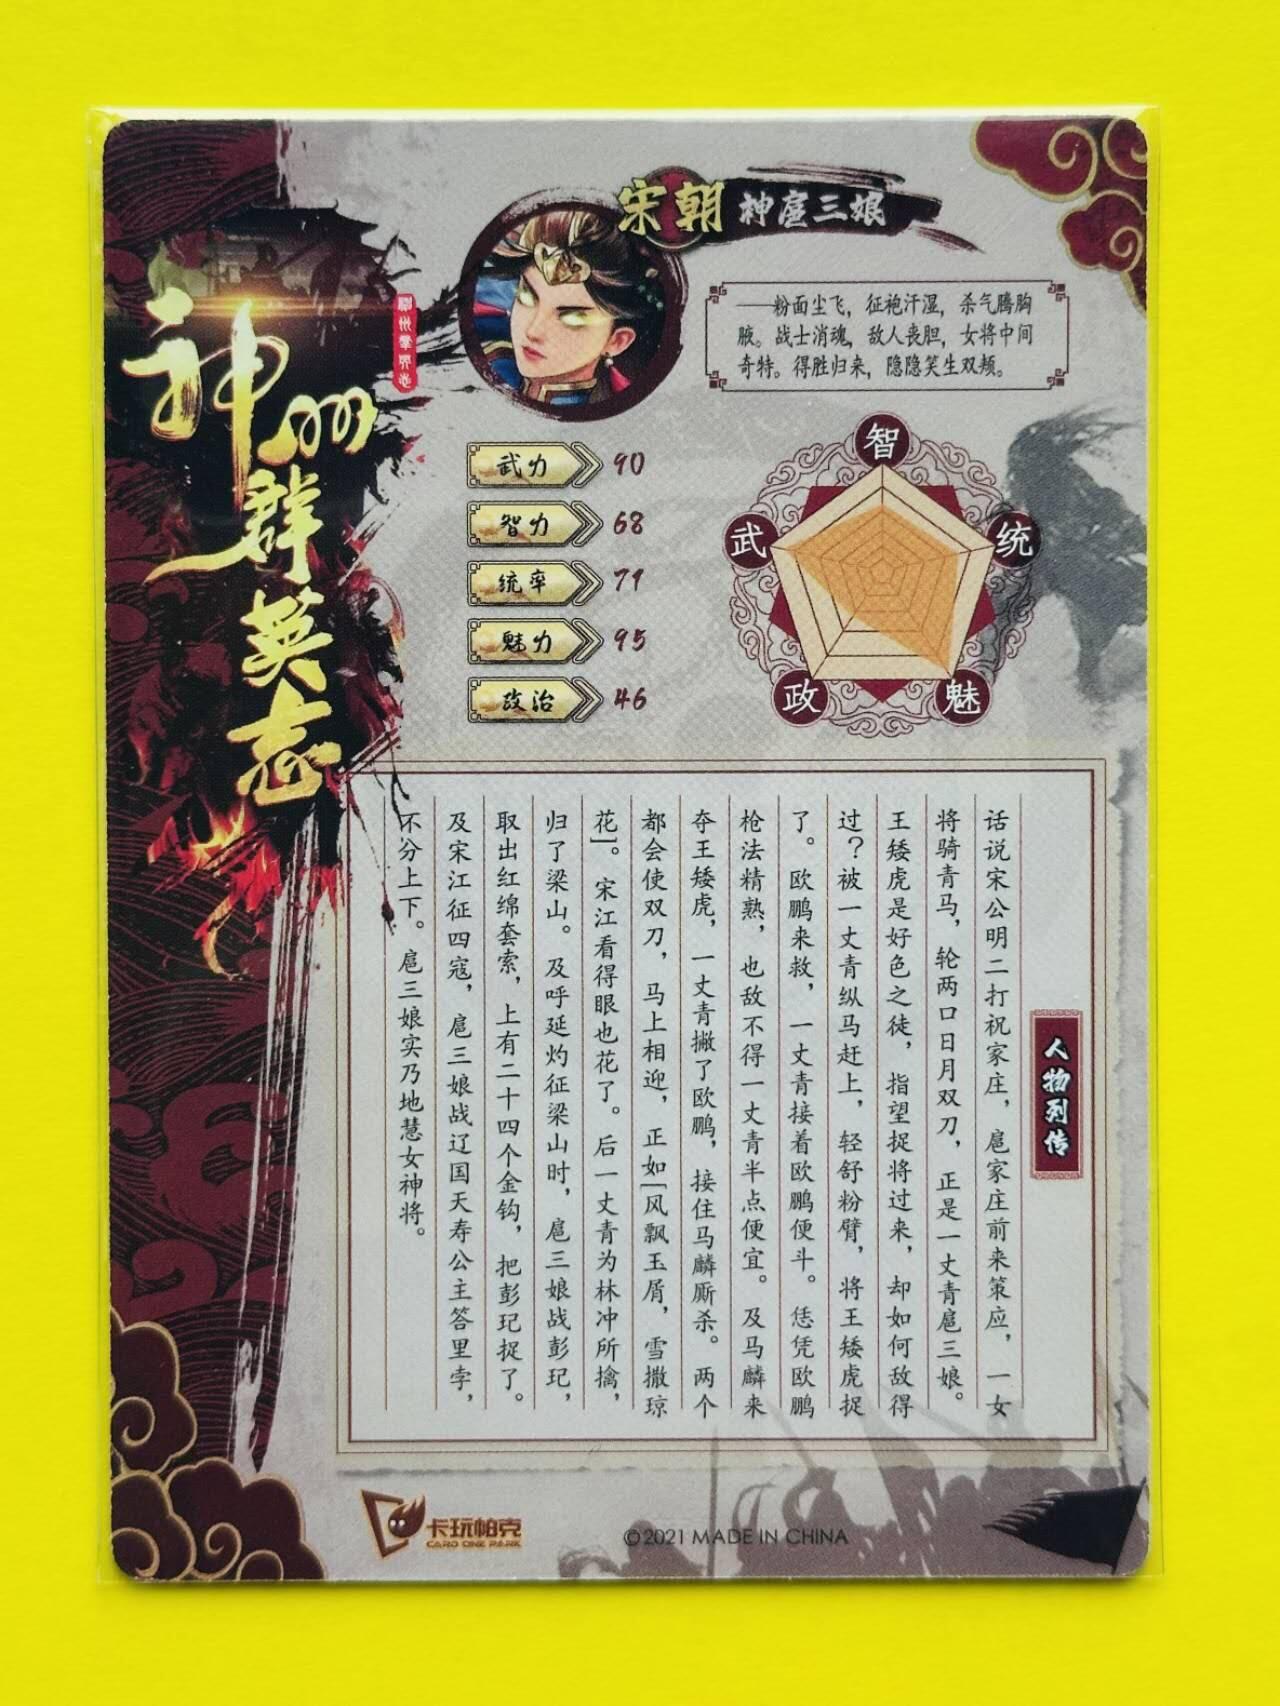 神州群英志
宋朝
神扈三娘
——粉面尘飞，征袍汗湿，杀气腾胸
腋。战士消魂，敌人丧胆，女将中间
奇特。得胜归来，隐隐笑生双颊。
武力 90
智力 68
统率 71
魅力 95
政治 46
智
武
统
政
魅
人物列传
话说宋公明二打祝家庄，扈家庄前来策应，一女
将骑青马，轮两口日月双刀，正是一丈青扈三娘。
王矮虎是好色之徒，指望捉将过来，却如何敌得
过？被一丈青纵马赶上，轻舒粉臂，将王矮虎捉
了。欧鹏来救，一丈青接着欧鹏便斗。恁凭欧鹏
枪法精熟，也敌不得一丈青半点便宜。及马麟来
夺王矮虎，一丈青撇了欧鹏，接住马麟厮杀。两个
都会使双刀，马上相迎，正如[风飘玉屑，雪撒琼
花]。宋江看得眼也花了。后一丈青为林冲所擒，
归了梁山。及呼延灼征梁山时，扈三娘战彭玘，
取出红绵套索，上有二十四个金钩，把彭玘捉了。
及宋江征四寇，扈三娘战辽国天寿公主答里孛，
不分上下。扈三娘实乃地慧女神将。
卡玩帕克
CARD ONE PARK
©2021 MADE IN CHINA